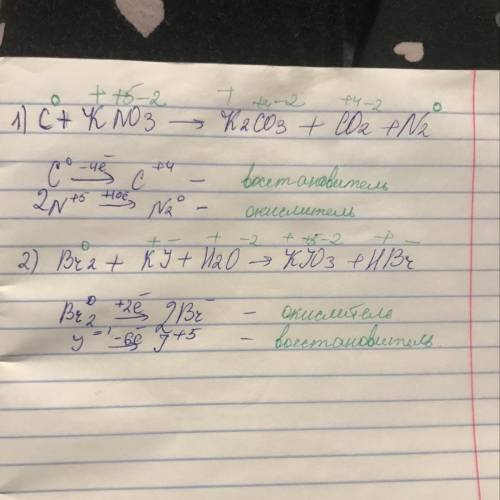 0 + +5 -2 + +4 -2 +4 -2 0
1) C + KNO3 → K2CO3 + CO2 + N2
C⁰ -4e⁻→ C⁺⁴ - восстановитель
2N⁺⁵ +10e⁻→ N2⁰ - окислитель
0 + - + -2 + +5 -2 + -
2) Br2 + KJ + H2O → KJO3 + HBr
Br2⁰ +2e⁻→ 2Br⁻ - окислитель
J⁻¹ -6e⁻→ J⁺⁵ - восстановитель